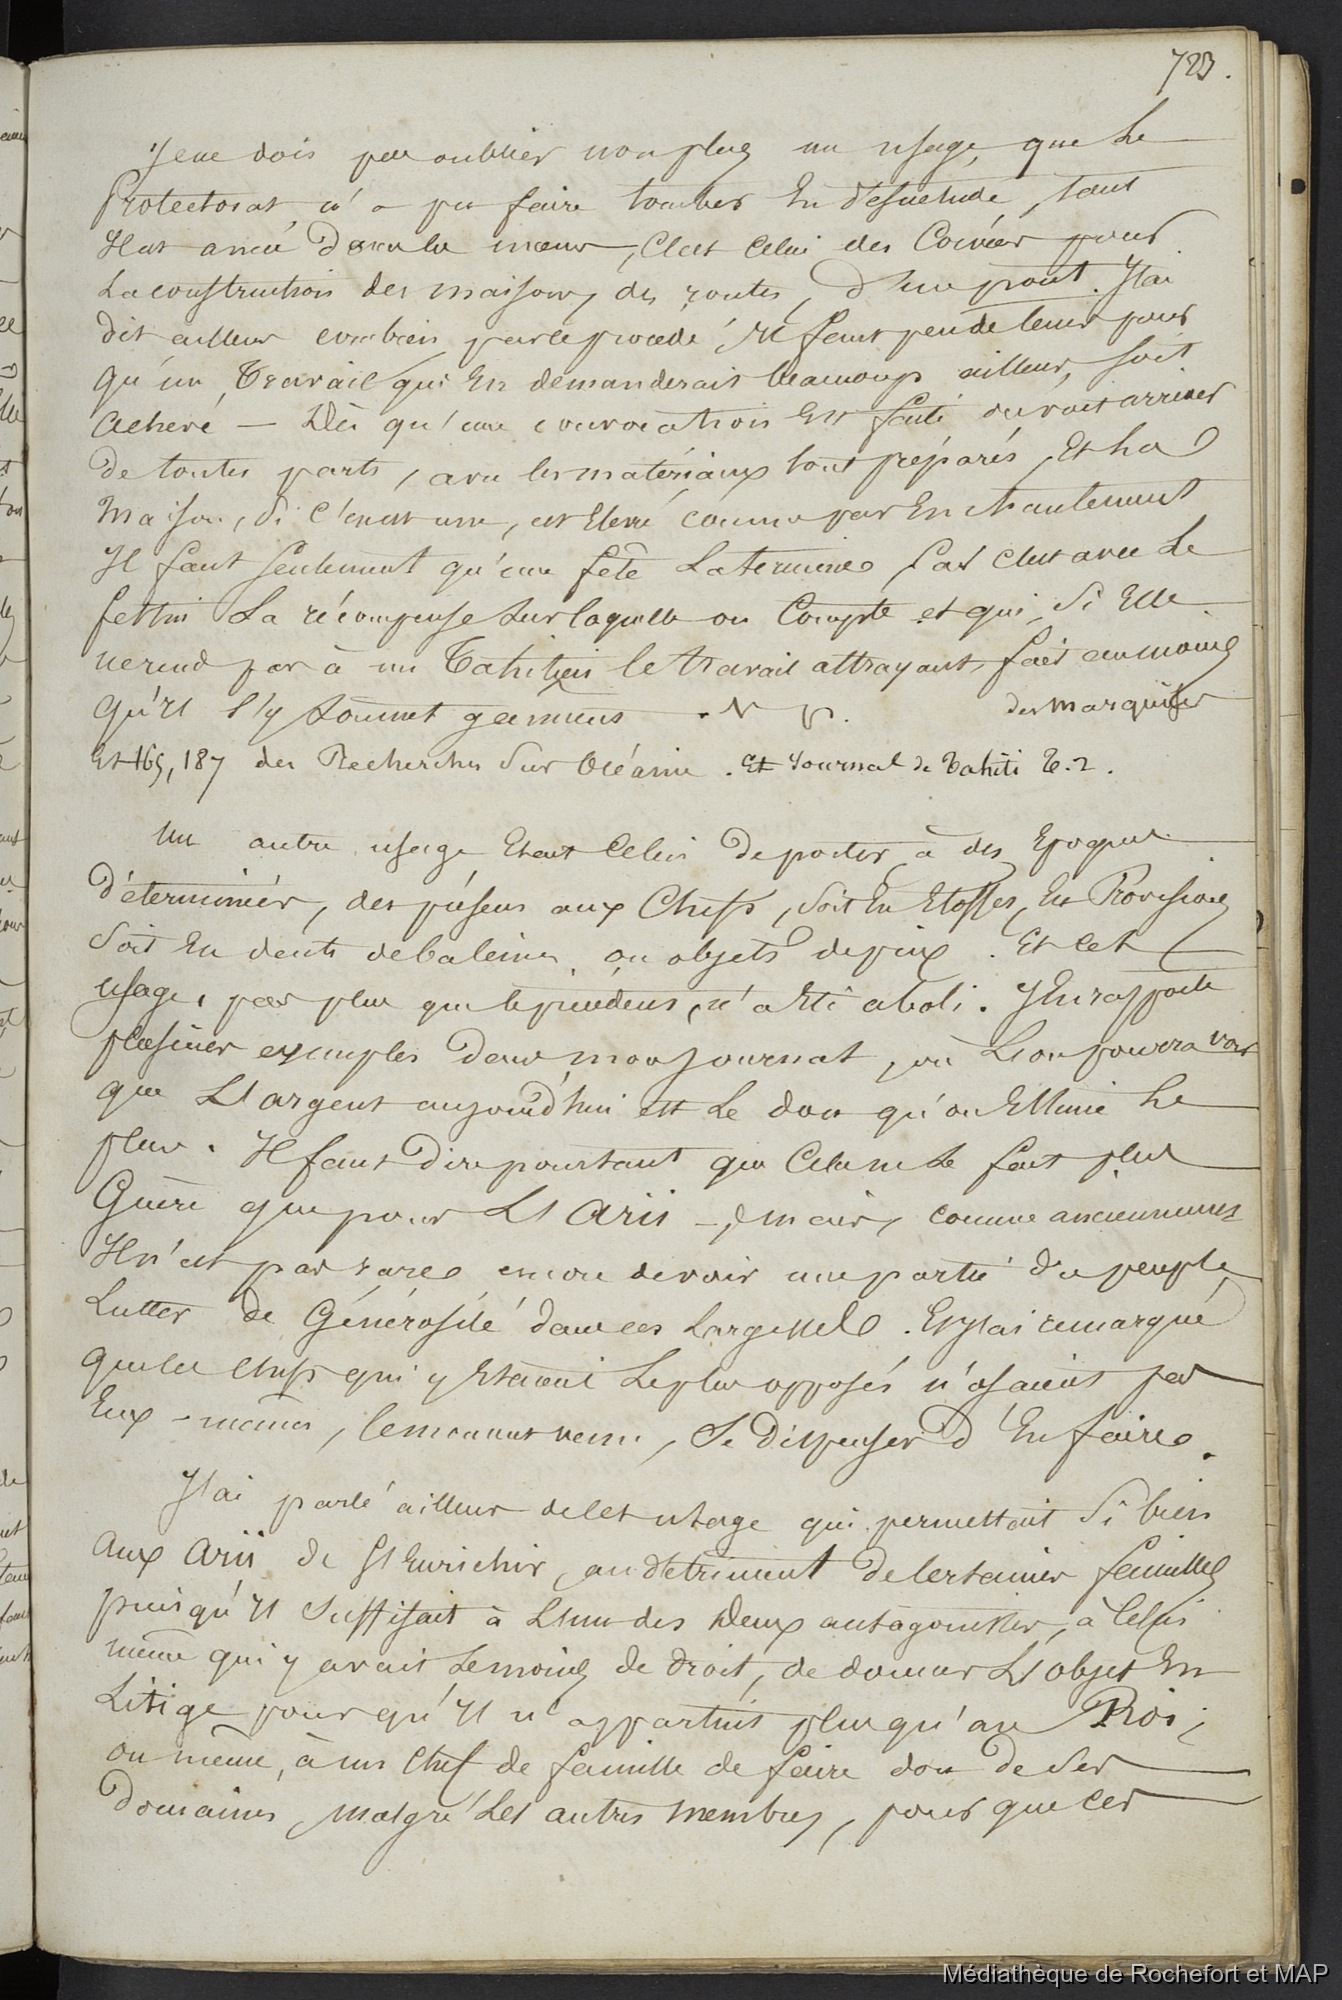 723.
Je ne dois pas oublier non plus un usage, que Le
Protectorat n'a pu faire tomber En désuetude, tant
Il est ancré dans les mœurs, C'est Celui des Corvées pour
La construction des maisons, des routes, d'un pont. J'ai
dit ailleurs combien par ce procédé, Il faut peu de tems pour
qu'un Travail qui En demanderait beaucoup ailleurs, soit
achevé — Dès qu'une convocation Est faite on voit arriver
de toutes parts, avec les matériaux tout préparés, Et La
Maison, Si c'en est une, est Elevée comme par Enchantement
Il faut seulement qu'une fête La termine, Car C'est avec Le
festin La récompense sur laquelle on Compte et qui, Si Elle
ne rend pas à un Tahitien le travail attrayant, fait au moins
qu'Il s'y soumet gaiement . V p. des marquises
Et 165, 187 des Recherches Sur Océanie . Et Journal de Tahiti T. 2 .
Un autre usage Etait Celui De porter à des Epoques
Déterminées, des présens aux Chefs, Soit En Etoffes, En Provisions
Soit En dents de baleines ou objets de prix . Et cet
usage, pas plus que le précédent, n'a Eté aboli. J'En rapporte
plusieurs exemples dans mon Journal, où L'on pourra voir
que L'argent aujourd'hui est Le don qu'on Estime Le
plus . Il faut Dire pourtant que Cela ne Se fait plus
Guère que pour Les Arii — , mais, comme anciennement
Il n'est pas rare encore de voir une partie du peuple
Lutter de Générosité dans ces Largesses . Et j'ai remarqué
que les Chefs qui y Etaient Le plus opposés n'osaient pas
Eux-mêmes, le moment venu, Se Dispenser d'En faire .
J'ai parlé ailleurs de Cet usage qui permettait Si bien
Aux Arii de S'Enrichir, au détriment De Certaines familles
puisqu'Il Suffisait à L'un des Deux antagonistes, à Celui
même qui y avait Le moins de droit, de donner L'objet En
Litige pour qu'Il n'appartint plus qu'au Roi ;
ou même, à un Chef de famille de faire don De Ses
Domaines, Malgré Les autres Membres, pour que Ces
Médiathèque de Rochefort et MAP